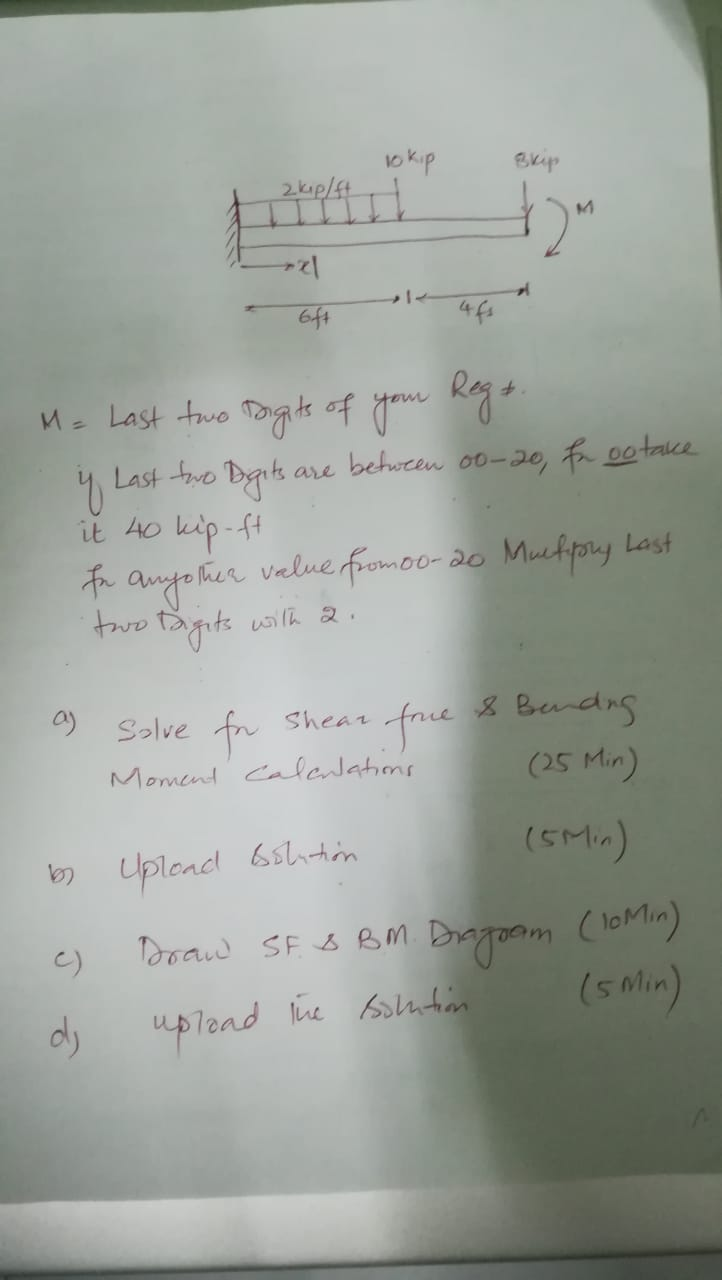 10 kip
8kip
2kip/ft
M
x
6ft
4ft
M = Last two Digits of your Reg #.
if Last two Digits are between 00-20, for 00 take
it 40 kip-ft
for any other value from 00-20 Multiply Last
two Digits with 2.
a) Solve for Shear force & Bending
Moment Calculations (25 Min)
b) Upload solution (5 Min)
c) Draw SF. & BM. Diagram (10 Min)
d) upload the solution (5 Min)